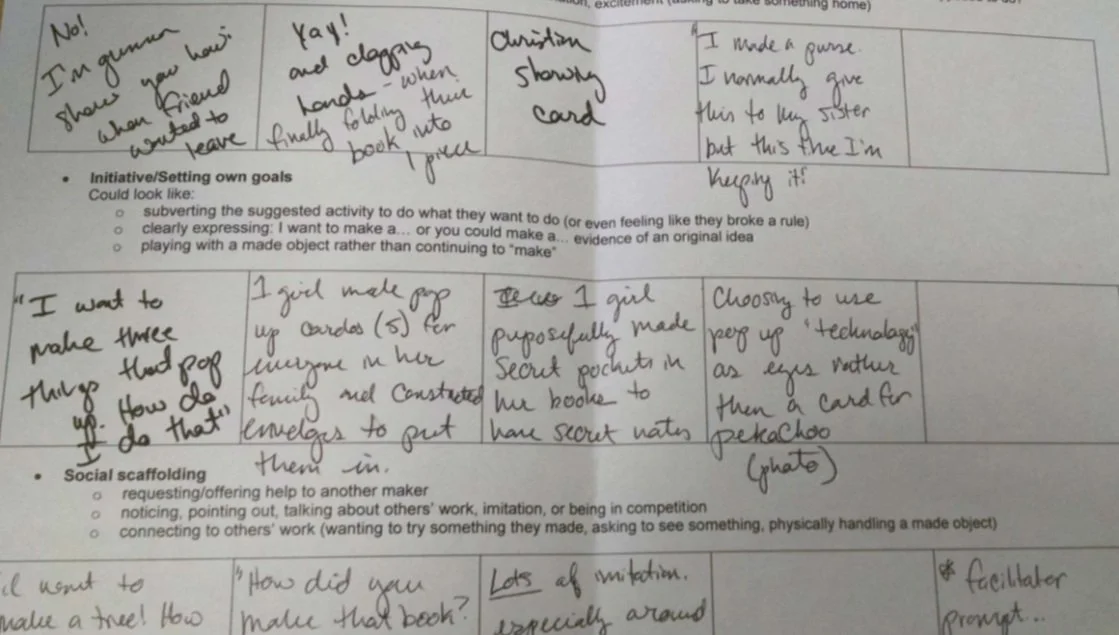 excitement (asking to take something home)
No!
I'm gunna
show you how.
when friend
wanted to
leave
Yay!
and clapping
hands - when
finally folding their
book into
1 piece
Christian
showing
card
"I made a purse.
I normally give
this to my sister
but this time I'm
keeping it!
• Initiative/Setting own goals
Could look like:
o subverting the suggested activity to do what they want to do (or even feeling like they broke a rule)
o clearly expressing: I want to make a... or you could make a... evidence of an original idea
o playing with a made object rather than continuing to "make"
"I want to
make three
things that pop
up. How do
I do that"
1 girl made pop
up cardos (5) for
everyone in her
family and constructed
envelopes to put
them in.
1 girl
puposefully made
secret pockets in
her booke to
have secret notes
Choosing to use
pop up "technology"
as eyes rather
then a card for
pekachoo
(photo)
• Social scaffolding
o requesting/offering help to another maker
o noticing, pointing out, talking about others' work, imitation, or being in competition
o connecting to others' work (wanting to try something they made, asking to see something, physically handling a made object)
I want to
make a tree! How
"How did you
make that book?
Lots of imitation.
especially around
* facilitator
prompt...